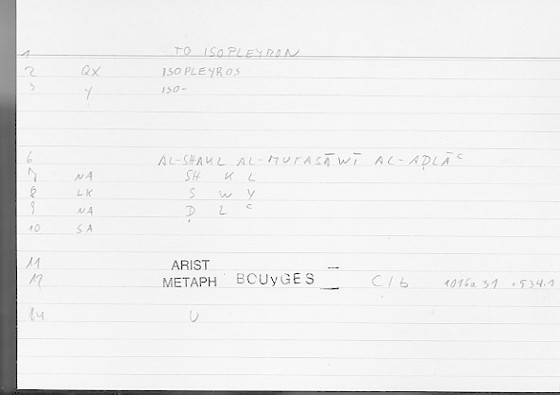 1 TO ISOPLEYRON
2 QX ISOPLEYROS
3 Y ISO-
6 AL-SHAKL AL-MUTASĀWĪ AL-AḌLĀʿ
7 NA SH K L
8 LK S W Y
9 NA Ḍ L ʿ
10 SA
11 ARIST
12 METAPH BOUYGES C/b 1016a31 .534.1
14 U